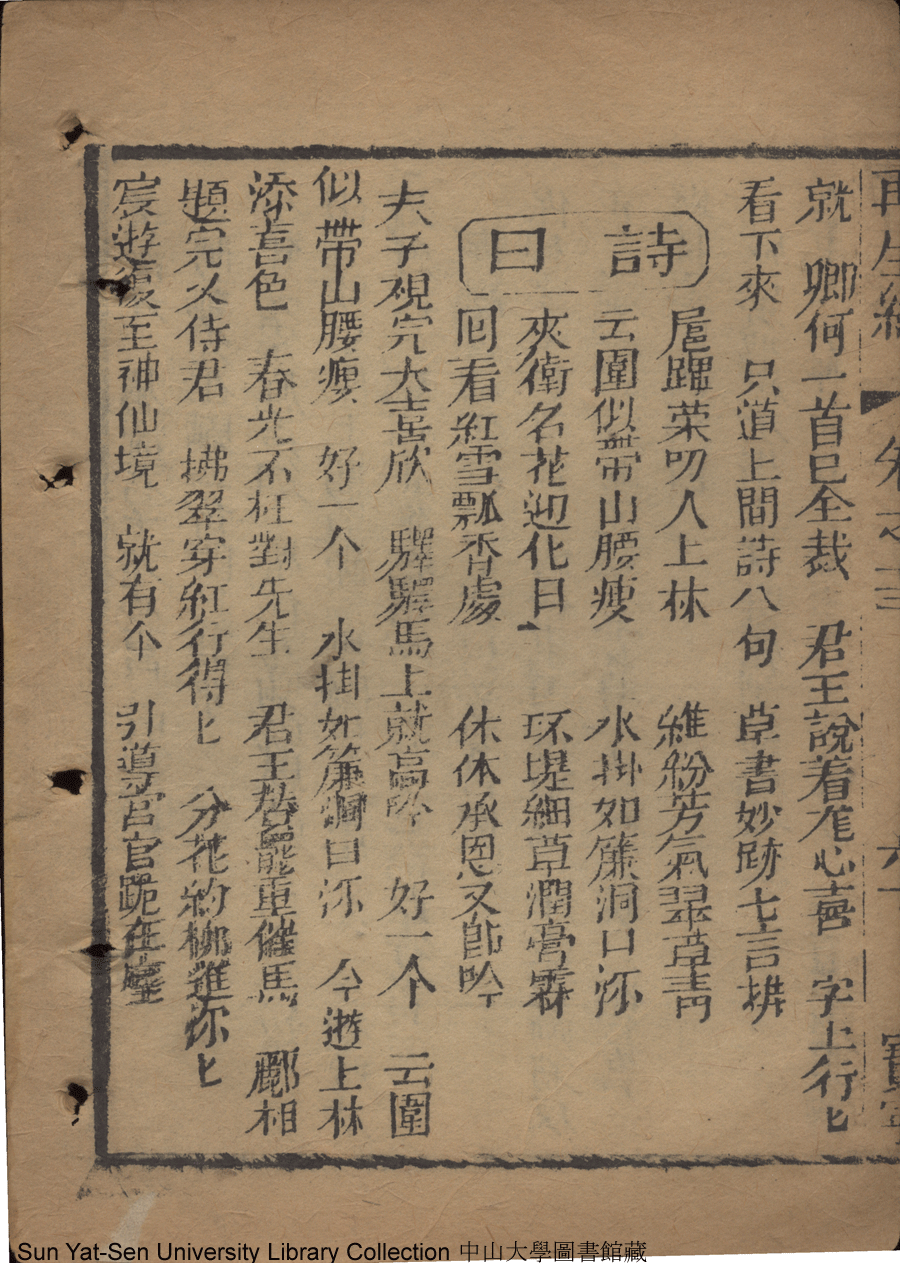 再生緣 卷之三 六 寶寧
就　卿何一首已全裁　君王說着龙心喜　字上行匕
看下來　只道上間詩八句　草書妙跡七言拼
詩曰
扈蹕荣叨人上林　維紛芳氣翠草青
云圍似帶山腰瘦　水掛如簾洞口深
夾衛名花迎化日　环堤細草潤膏霖
囘看紅雪瓢香處　休休承恩又卽吟
夫子視完大喜欣　驛驛馬上就高吟　好一个　云圍
似帶山腰瘦　好一个　水掛如簾洞口深　今遊上林
添喜色　春光不枉對先生　君王替罷重催馬　酈相
題完乂侍君　拂翠穿紅行得匕　分花約柳進深匕
宸遊復至神仙境　就有个　引導宮官跪在塵
Sun Yat-Sen University Library Collection 中山大學圖書館藏